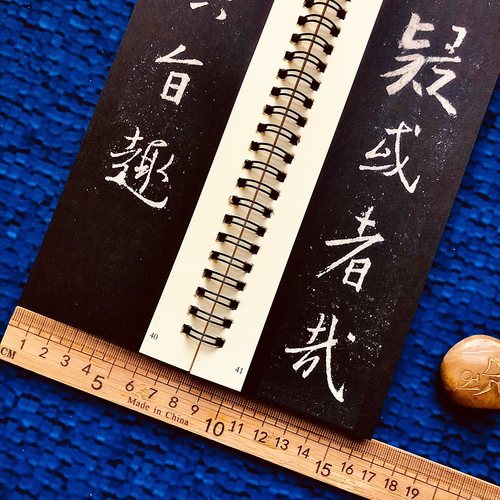 旨趣
疑或者哉
40
41
CM 1 2 3 4 5 6 7 8 9 10 11 12 13 14 15 16 17 18 19
Made in China